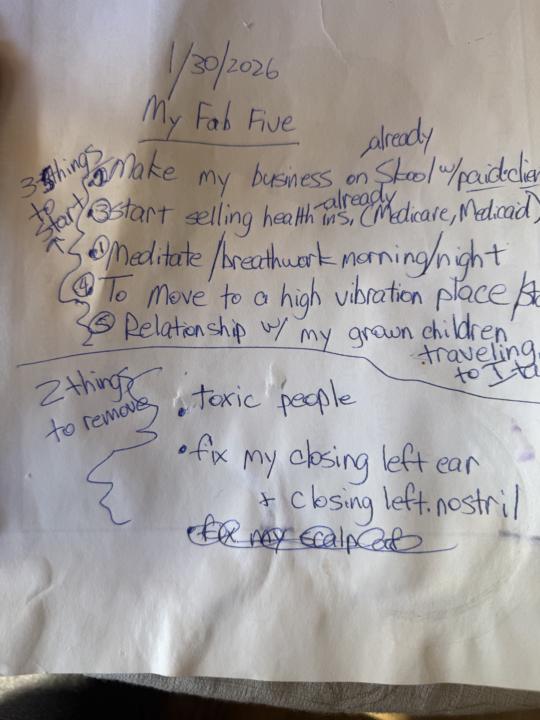 1/30/2026
My Fab Five
already
3 things to start
② Make my business on Skool w/ paid
already
③ start selling health ins, (Medicare, Medicaid)
① Meditate/breathwork morning/night
④ To move to a high vibration place/
⑤ Relationship w/ my grown children
traveling
to
2 things to remove
• toxic people
• fix my closing left ear
+ closing left nostril
fix my scalp